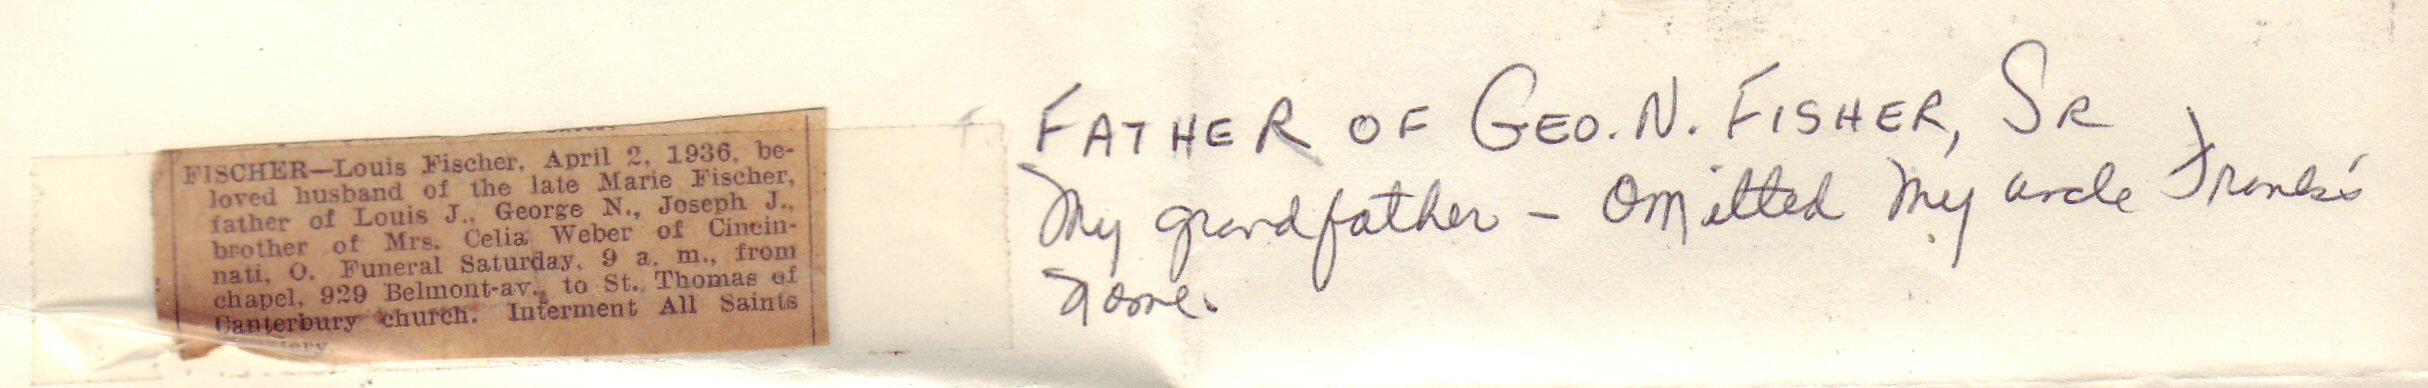 FISCHER—Louis Fischer, April 2, 1936, be-
loved husband of the late Marie Fischer,
father of Louis J., George N., Joseph J.,
brother of Mrs. Celia Weber of Cincin-
nati, O. Funeral Saturday, 9 a. m., from
chapel, 929 Belmont-av., to St. Thomas of
Canterbury church. Interment All Saints
FATHER OF GEO. N. FISHER, SR
My grandfather – omitted My uncle Frank's
name.